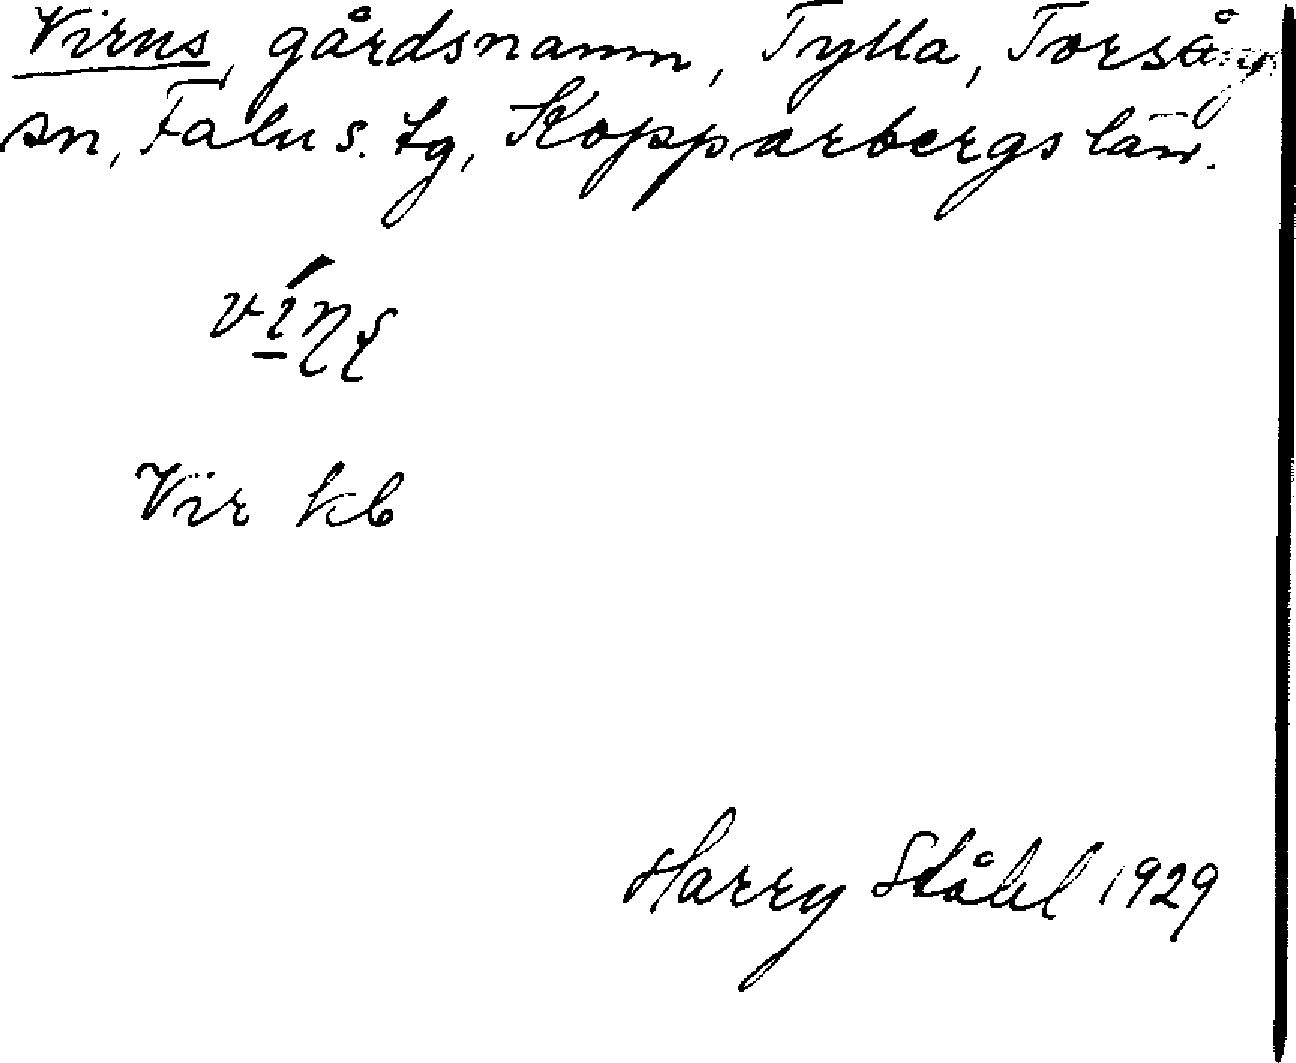 Virns, gårdsnamn, Tylla, Torsångs
sn, Falu s. tg, Kopparbergs län.
Vir kb
Harry Ståhl 1929